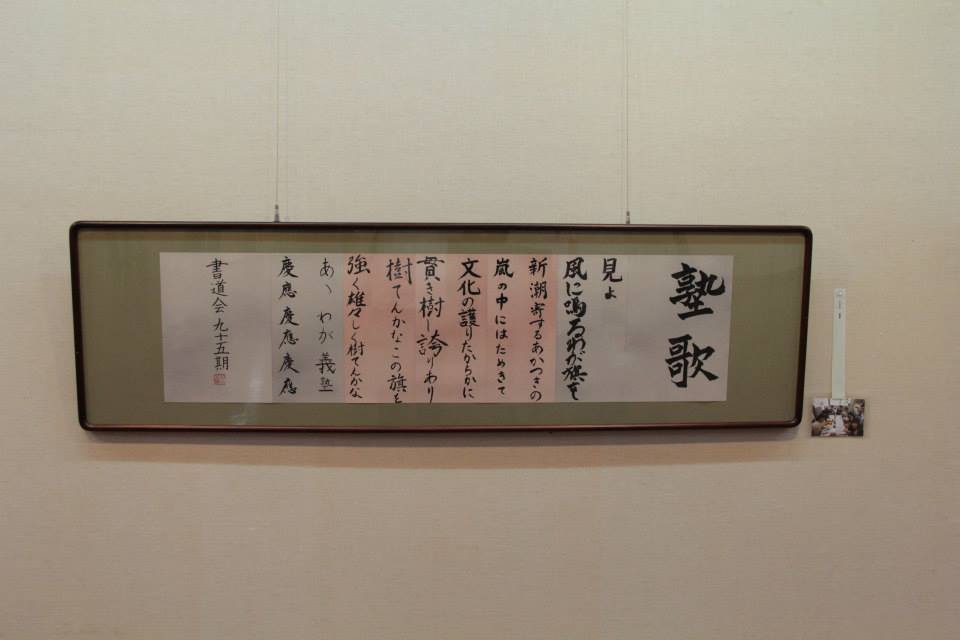 塾歌
見よ
風に鳴るわが旗を
新潮寄するあかつきの
嵐の中にはためきて
文化の護りたからかに
貫き樹し誇りあり
樹てんかなこの旗を
強く雄々しく樹てんかな
あゝわが義塾
慶應慶應慶應
書道会九十五期